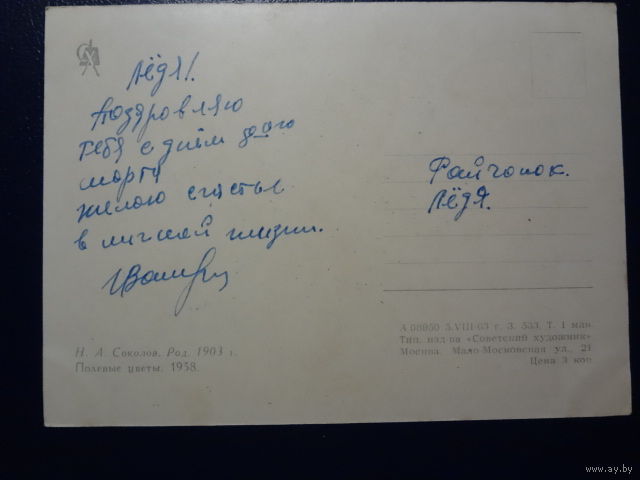 Лёдя!
Поздровляю
тебя с днём 8ого
марта
желою счастье
в личной жизни.
Файгонок.
Лёдя.
Н. А. Соколов. Род. 1903 г.
Полевые цветы. 1958.
А 08950 5.VIII-63 г. З. 533. Т. 1 млн.
Тип. изд-ва «Советский художник»
Москва. Мало-Московская ул., 21
Цена 3 коп
www.ay.by